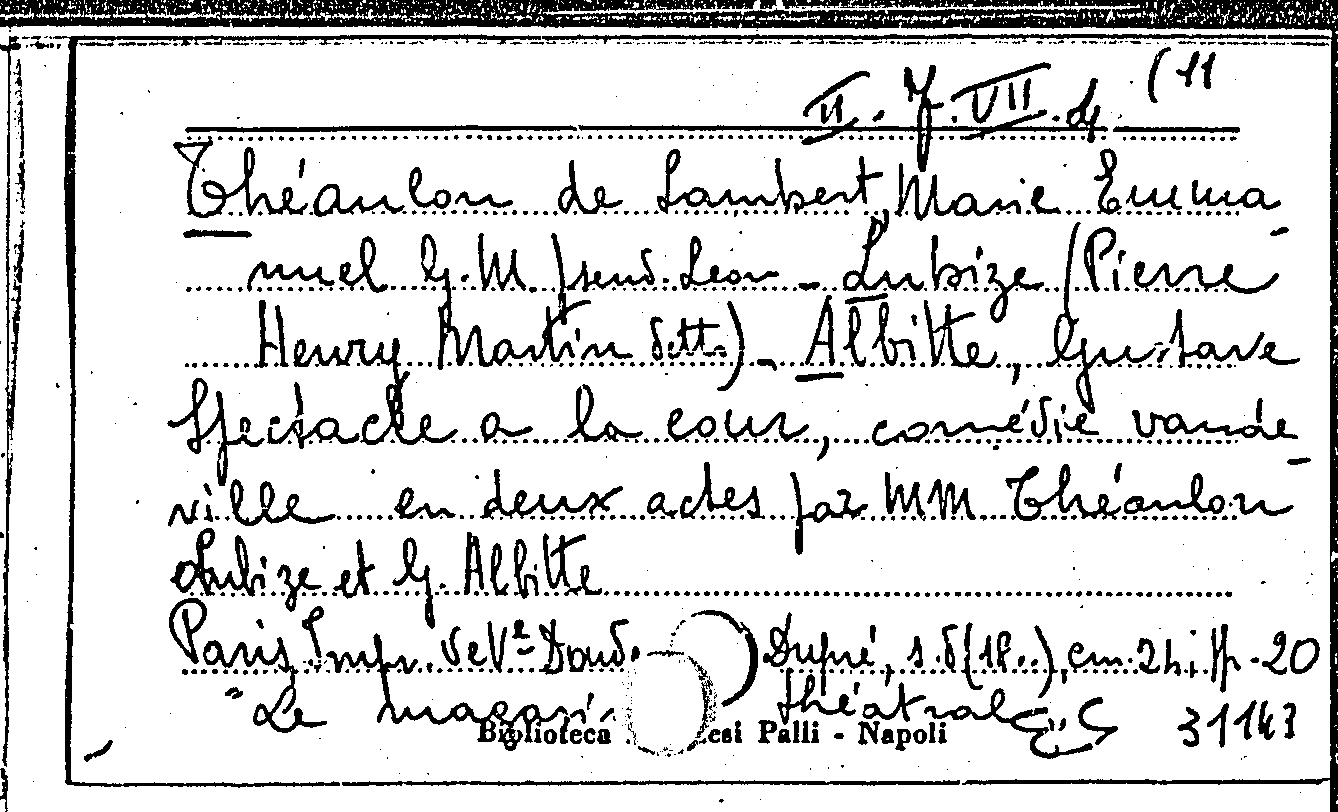 II. J. VII. d (11
Théaulon de Lambert, Marie Emma-
nuel G. M. pseud. Leon - Lubize (Pierre
Henry Martin detto) - Albitte, Gustave
Spectacle a la cour, comédie vaude-
ville en deux actes par MM Théaulon
Lubize et G. Albitte
Paris, Impr. de Ve Dond. Dupré, s.d (18..), cm. 24; pp. 20
"Le magasi théatral
Biblioteca esi Palli - Napoli 31143